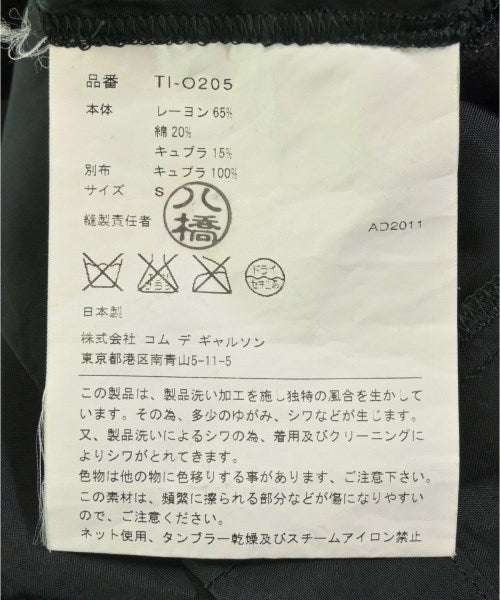 品番 TI-O205
本体 レーヨン 65%
綿 20%
キュプラ 15%
別布 キュプラ 100%
サイズ S
八橋
縫製責任者
AD2011
ドライ
セキユ系
日本製
株式会社 コム デ ギャルソン
東京都港区南青山5-11-5
この製品は、製品洗い加工を施し独特の風合を生かして
います。その為、多少のゆがみ、シワなどが生じます。
又、製品洗いによるシワの為、着用及びクリーニングに
よりシワがとれてきます。
色物は他の物に色移りする事があります、ご注意下さい。
この素材は、頻繁に擦られる部分などが傷になりやすい
ので、ご注意ください。
ネット使用、タンブラー乾燥及びスチームアイロン禁止